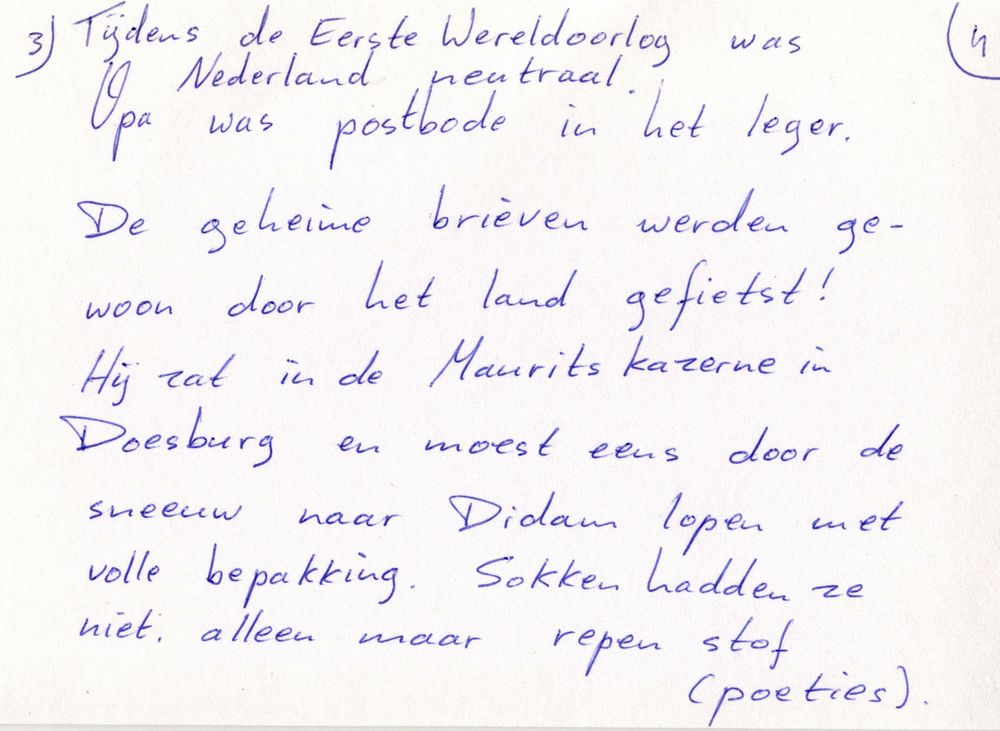 3) Tijdens de Eerste Wereldoorlog was
Nederland neutraal.
Opa was postbode in het leger.
De geheime brieven werden ge-
woon door het land gefietst!
Hij zat in de Maurits kazerne in
Doesburg en moest eens door de
sneeuw naar Didam lopen met
volle bepakking. Sokken hadden ze
niet. alleen maar repen stof
(poeties).